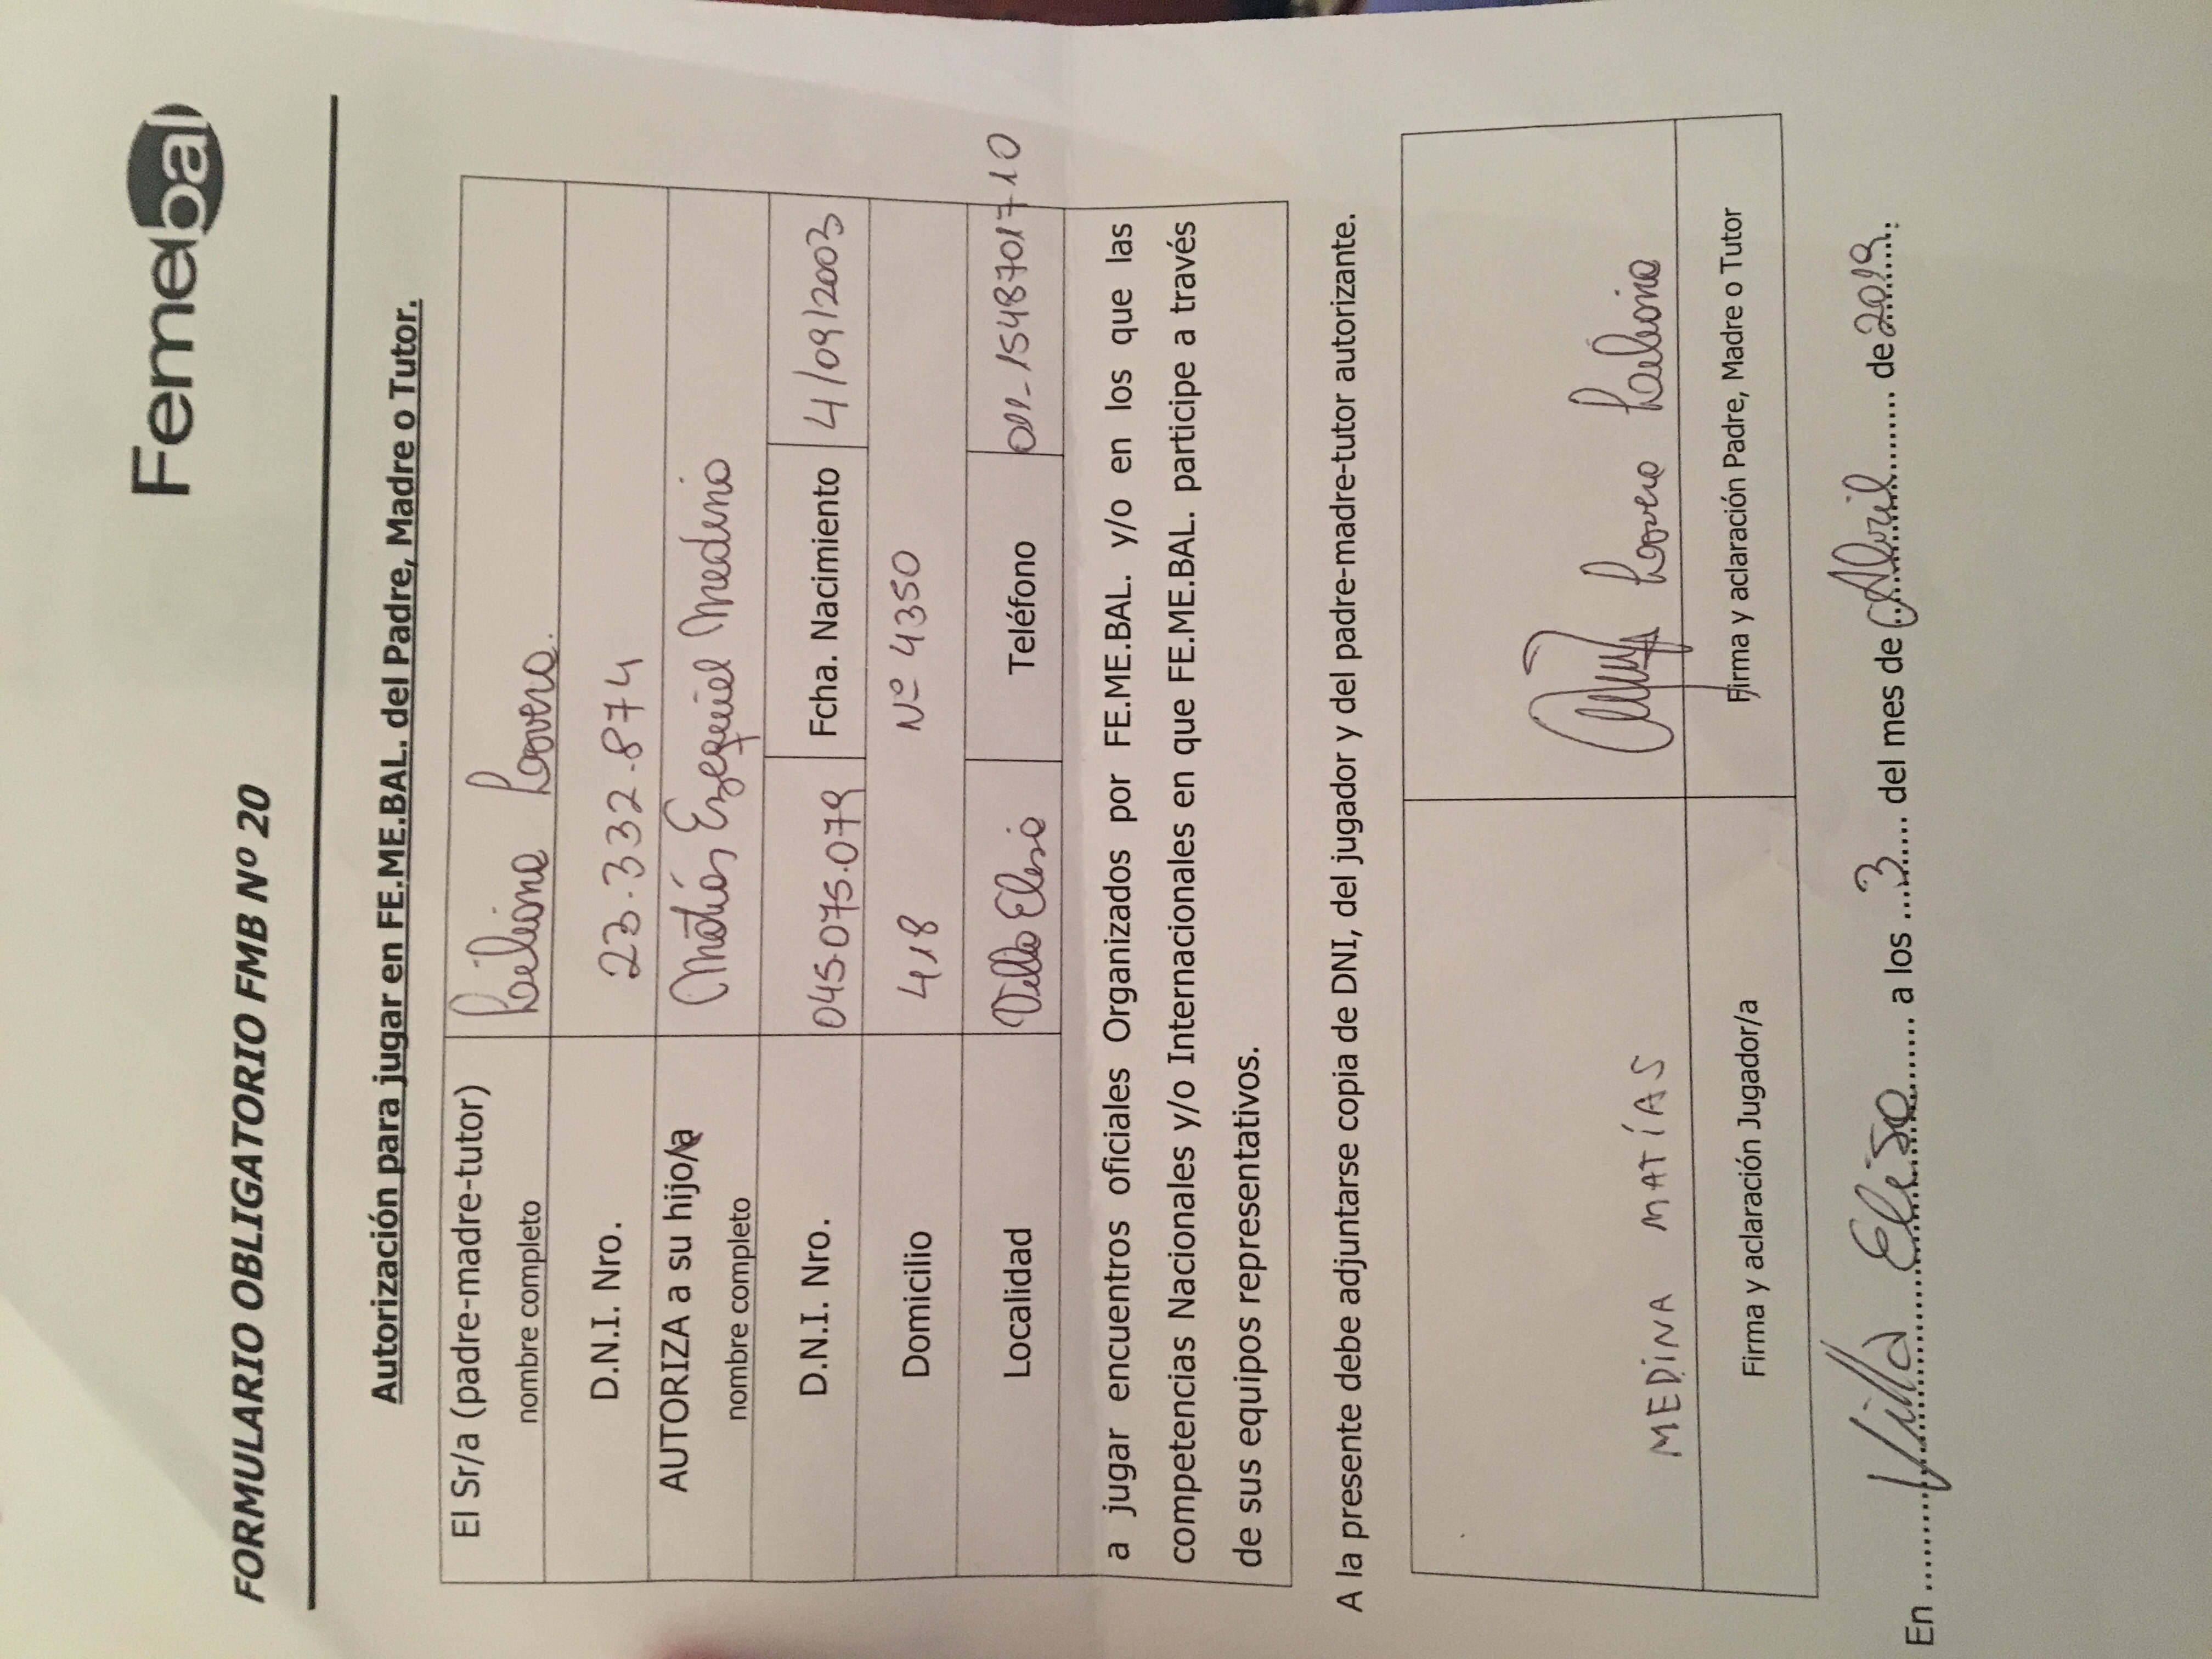 Femebal
FORMULARIO OBLIGATORIO FMB Nº 20
Autorización para jugar en FE.ME.BAL. del Padre, Madre o Tutor.
El Sr/a (padre-madre-tutor) nombre completo Liliana Lovera.
D.N.I. Nro. 23.332.874
AUTORIZA a su hijo/a nombre completo Matías Ezequiel Medina
D.N.I. Nro. 045.075.079 Fcha. Nacimiento 4/09/2003
Domicilio 418 Nº 4350
Localidad Villa Elisa Teléfono 011-1548701710
a jugar encuentros oficiales Organizados por FE.ME.BAL. y/o en los que las
competencias Nacionales y/o Internacionales en que FE.ME.BAL. participe a través
de sus equipos representativos.
A la presente debe adjuntarse copia de DNI, del jugador y del padre-madre-tutor autorizante.
MEDINA MATÍAS Lovera Liliana
Firma y aclaración Jugador/a Firma y aclaración Padre, Madre o Tutor
En Villa Elisa a los 3 del mes de Abril de 2019.